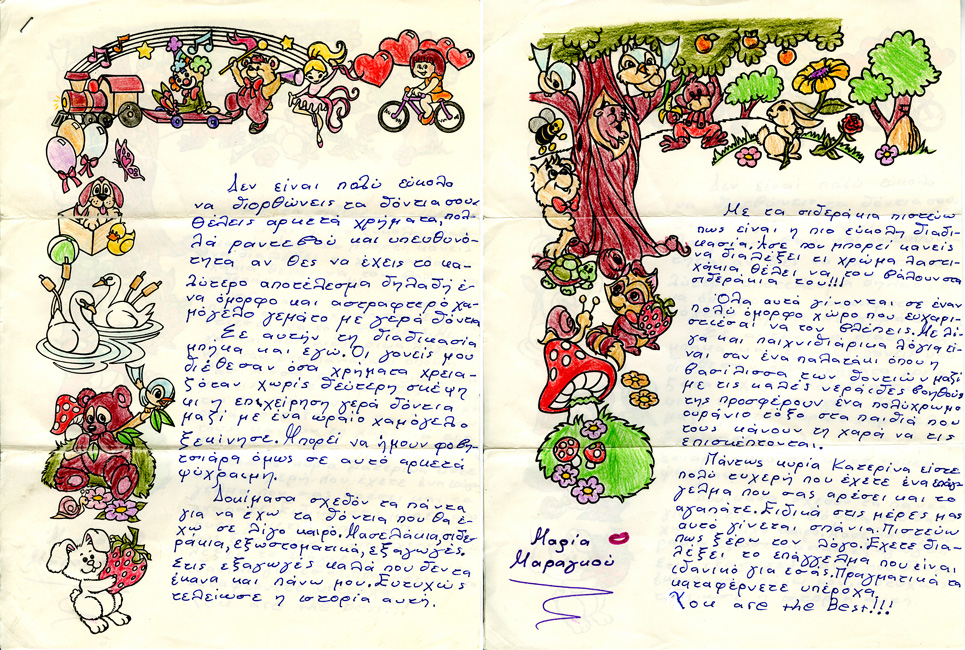 1
Δεν είναι πολύ εύκολο
να διορθώνεις τα δόντια σου.
Θέλεις αρκετά χρήματα, πολ-
λά ραντεβού και υπευθυνό-
τητα αν θες να έχεις το κα-
λύτερο αποτέλεσμα δηλαδή έ-
να όμορφο και αστραφτερό χα-
μόγελο γεμάτο με γερά δόντια
Σε αυτήν τη διαδικασία
μπήκα και εγώ. Οι γονείς μου
διέθεσαν όσα χρήματα χρεια-
ζόταν χωρίς δεύτερη σκέψη
κι η επιχείρηση γερά δόντια
μαζί με ένα ωραίο χαμόγελο
ξεκίνησε. Μπορεί να ήμουν φοβη-
τσιάρα όμως σε αυτό αρκετά
ψύχραιμη.
Δοκίμασα σχεδόν τα πάντα
για να έχω τα δόντια που θα έ-
χω σε λίγο καιρό. Μασελάκια, σιδε-
ράκια, εξωστοματικά, εξαγωγές.
Στις εξαγωγές καλά που δεν τα
έκανα και πάνω μου. Ευτυχώς
τελείωσε η ιστορία αυτή.
Με τα σιδεράκια πιστεύω
πως είναι η πιο εύκολη διαδι-
κασία. Άσε που μπορεί κανείς
να διαλέξει τι χρώμα λαστι-
χάκια θέλει να του βάλουν στα
σιδεράκια του!!!
Όλα αυτά γίνονται σε έναν
πολύ όμορφο χώρο που ευχαρι-
στιέσαι να τον βλέπεις. Με λί-
γα και παιχνιδιάρικα λόγια εί-
ναι σαν ένα παλατάκι όπου η
βασίλισσα των δοντιών μαζί
με τις καλές νεράιδες βοηθούς
της προσφέρουν ένα πολύχρωμο
ουράνιο τόξο στα παιδιά που
τους κάνουν τη χαρά να τις
επισκέπτονται.
Πάντως κυρία Κατερίνα είστε
πολύ τυχερή που έχετε ένα επάγ-
γελμα που σας αρέσει και το
αγαπάτε. Ειδικά στις μέρες μας
αυτό γίνεται σπάνια. Πιστεύω
πως ξέρω τον λόγο. Έχετε δια-
λέξει το επάγγελμα που είναι
ιδανικό για εσάς. Πραγματικά τα
καταφέρνετε υπέροχα.
You are the Best!!!
Μαρία
Μαραγκού